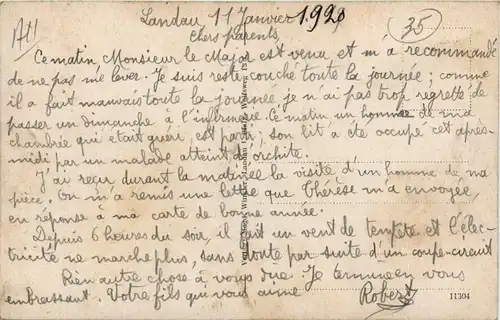 All
Landau 11 Janvier 1920
35
Chers parents,
Ce matin Monsieur le Major est venu et m'a recommandé
de ne pas me lever. Je suis resté couché toute la journée ; comme
il a fait mauvais toute la journée je n'ai pas trop regretté de
passer un dimanche à l'infirmerie. Ce matin un homme de ma
chambrée qui était guéri est parti ; son lit a été occupé cet après-
midi par un malade atteint d'orchite.
J'ai reçu durant la matinée la visite d'un homme de ma
pièce. On m'a remis une lettre que Thérèse m'a envoyée,
en réponse à ma carte de bonne année.
Depuis 6 heures du soir, il fait un vent de tempête et l'élec-
tricité ne marche plus, sans doute par suite d'un coupe-circuit
Rien autre chose à vous dire. Je termine en vous
embrassant. Votre fils qui vous aime
Robert
11304